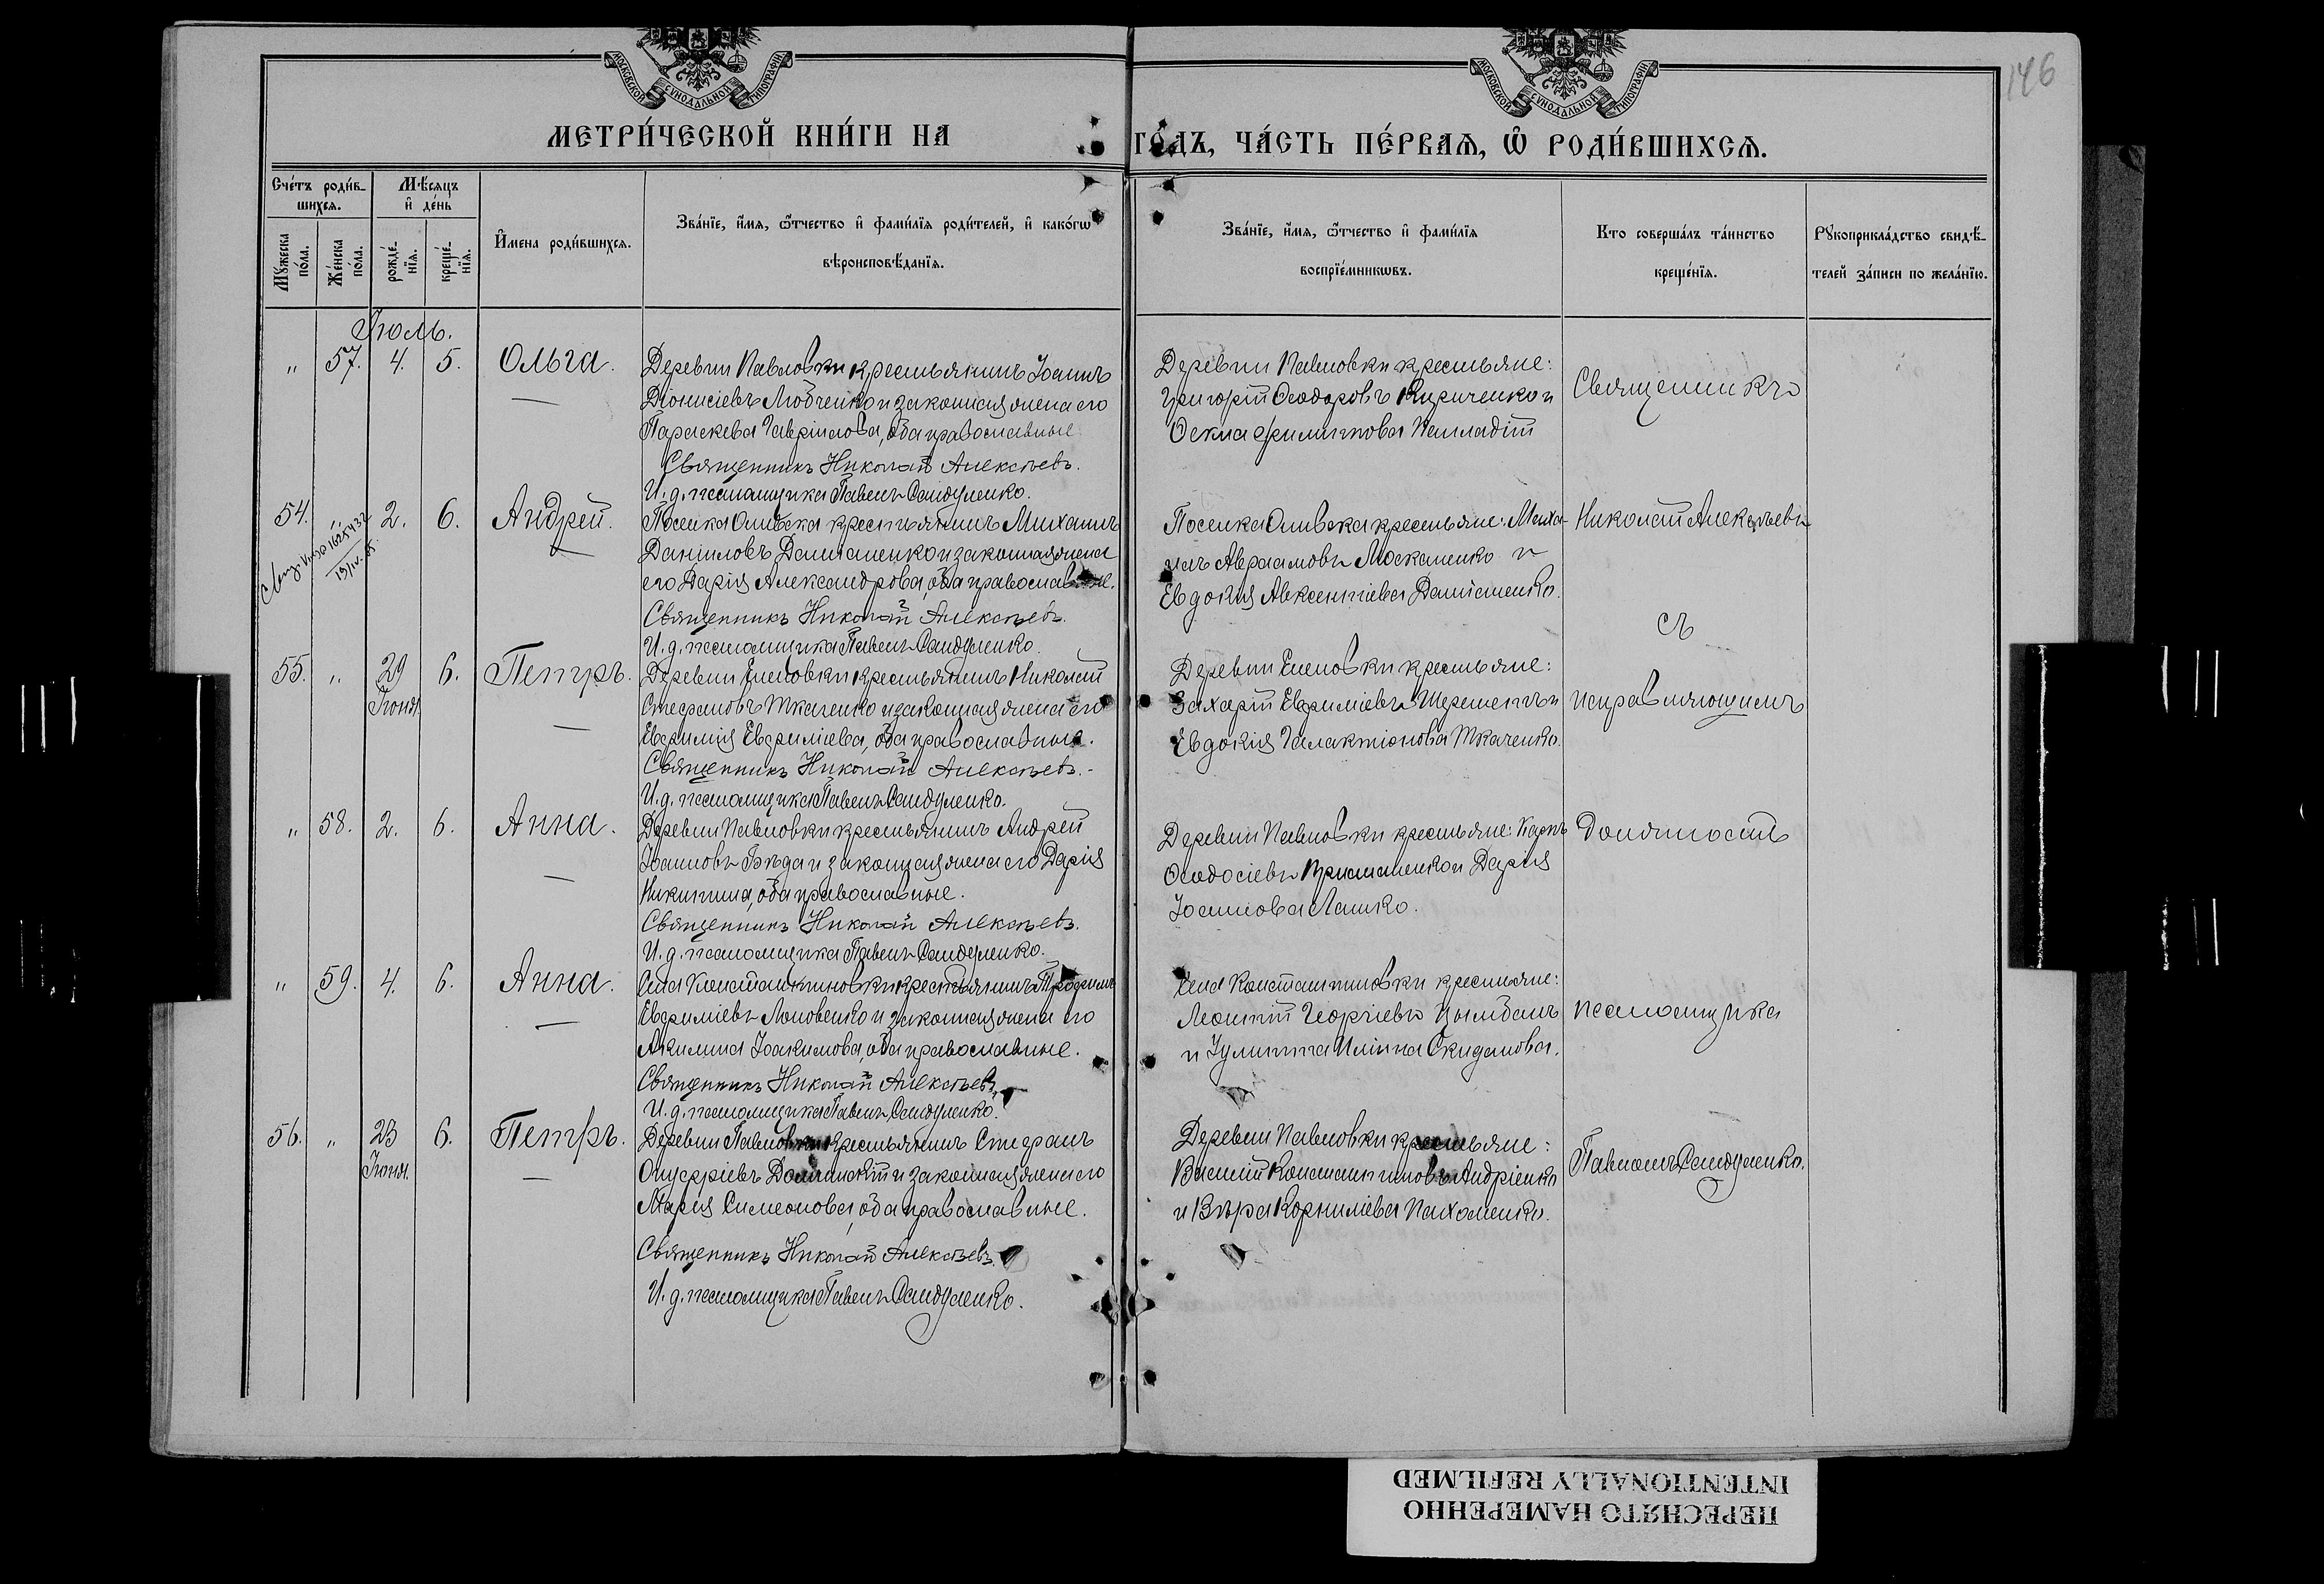 146
МОСКОВСКОЙ СѴНОДАЛЬНОЙ ТИПОГРАФІИ
МОСКОВСКОЙ СѴНОДАЛЬНОЙ ТИПОГРАФІИ
МЕТРИ́ЧЕСКОЙ КНИ́ГИ НА ГО́ДЪ, ЧА́СТЬ ПЕ́РВАѦ, Ѡ҆ РОДИ́ВШИХСѦ.
Сче́тъ роди́в-
шихсѧ.
Мꙋжеска по́ла.
Же́нска по́ла.
Мѣ́сѧцъ
и҆ де́нь
рожде́-
нїѧ.
креще́-
нїѧ.
И҆мена роди́вшихсѧ.
Зва́нїе, и҆́мѧ, ѻ҆́тчество и҆ фами́лїѧ роди́телей, и҆ како́гѡ
вѣроисповѣ́данїѧ.
Зва́нїе, и҆́мѧ, ѻ҆́тчество и҆ фами́лїѧ
воспрїе́мникѡвъ.
Кто соверша́лъ та́инство
креще́нїѧ.
Рꙋкоприкла́дство свидѣ́-
телей за́писи по жела́нїю.
Іюль.
" 57. 4. 5. Ольга.
Деревни Павловки крестьянинъ Іоаннъ
Діонисіевъ Любченко и законная жена его
Параскева Гавріилова, оба православные
Священникъ Николай Алексѣевъ.
И. д. псаломщика Павелъ Сандуленко.
Деревни Павловки крестьяне:
Григорій Ѳеодоровъ Кириченко и
Ѳекла Филиппова
54. " 2. 6. Андрей.
Поселка крестьянинъ Михаилъ
Даніиловъ и законная жена
его Дарія Александрова, оба православные.
Священникъ Николай Алексѣевъ.
И. д. псаломщика Павелъ Сандуленко.
Поселка крестьяне: Миха-
илъ Авраамовъ Москаленко и
Евдокія Авксентіева
55. " 29 Іюня. 6. Петръ.
Деревни Еленовки крестьянинъ Николай
Стефановъ Ткаченко и законная жена его
Евфимія Евфиміева, оба православные.
Священникъ Николай Алексѣевъ.
И. д. псаломщика Павелъ Сандуленко.
Деревни Еленовки крестьяне:
Захарій Евфиміевъ и
Евдокія Галактіонова Ткаченко.
" 58. 2. 6. Анна.
Деревни Павловки крестьянинъ Андрей
Іоанновъ Бѣда и законная жена его Дарія
Никитина, оба православные.
Священникъ Николай Алексѣевъ.
И. д. псаломщика Павелъ Сандуленко.
Деревни Павловки крестьяне: Карпъ
Ѳеодосіевъ и Дарія
Іоаннова Лашко.
" 59. 4. 6. Анна.
Села Константиновки крестьянинъ Трофимъ
Евфиміевъ и законная жена его
Акилина Іоакимова, оба православные.
Священникъ Николай Алексѣевъ.
И. д. псаломщика Павелъ Сандуленко.
Села Константиновки крестьяне:
Леонтій Георгіевъ Цымбалъ
и Іулитта Иліина Скиданова.
56. " 23 Іюня. 6. Петръ.
Деревни Павловки крестьянинъ Стефанъ
Онуфріевъ и законная жена его
Марія Симеонова, оба православные.
Священникъ Николай Алексѣевъ.
И. д. псаломщика Павелъ Сандуленко.
Деревни Павловки крестьяне:
Василій Константиновъ Андріенко
и Вѣра Корниліева Пахоменко.
Священникъ
Николай Алексѣевъ
съ
исправляющимъ
должность
псаломщика
Павломъ Сандуленко.
ПЕРЕСНЯТО НАМЕРЕННО
INTENTIONALLY REFILMED